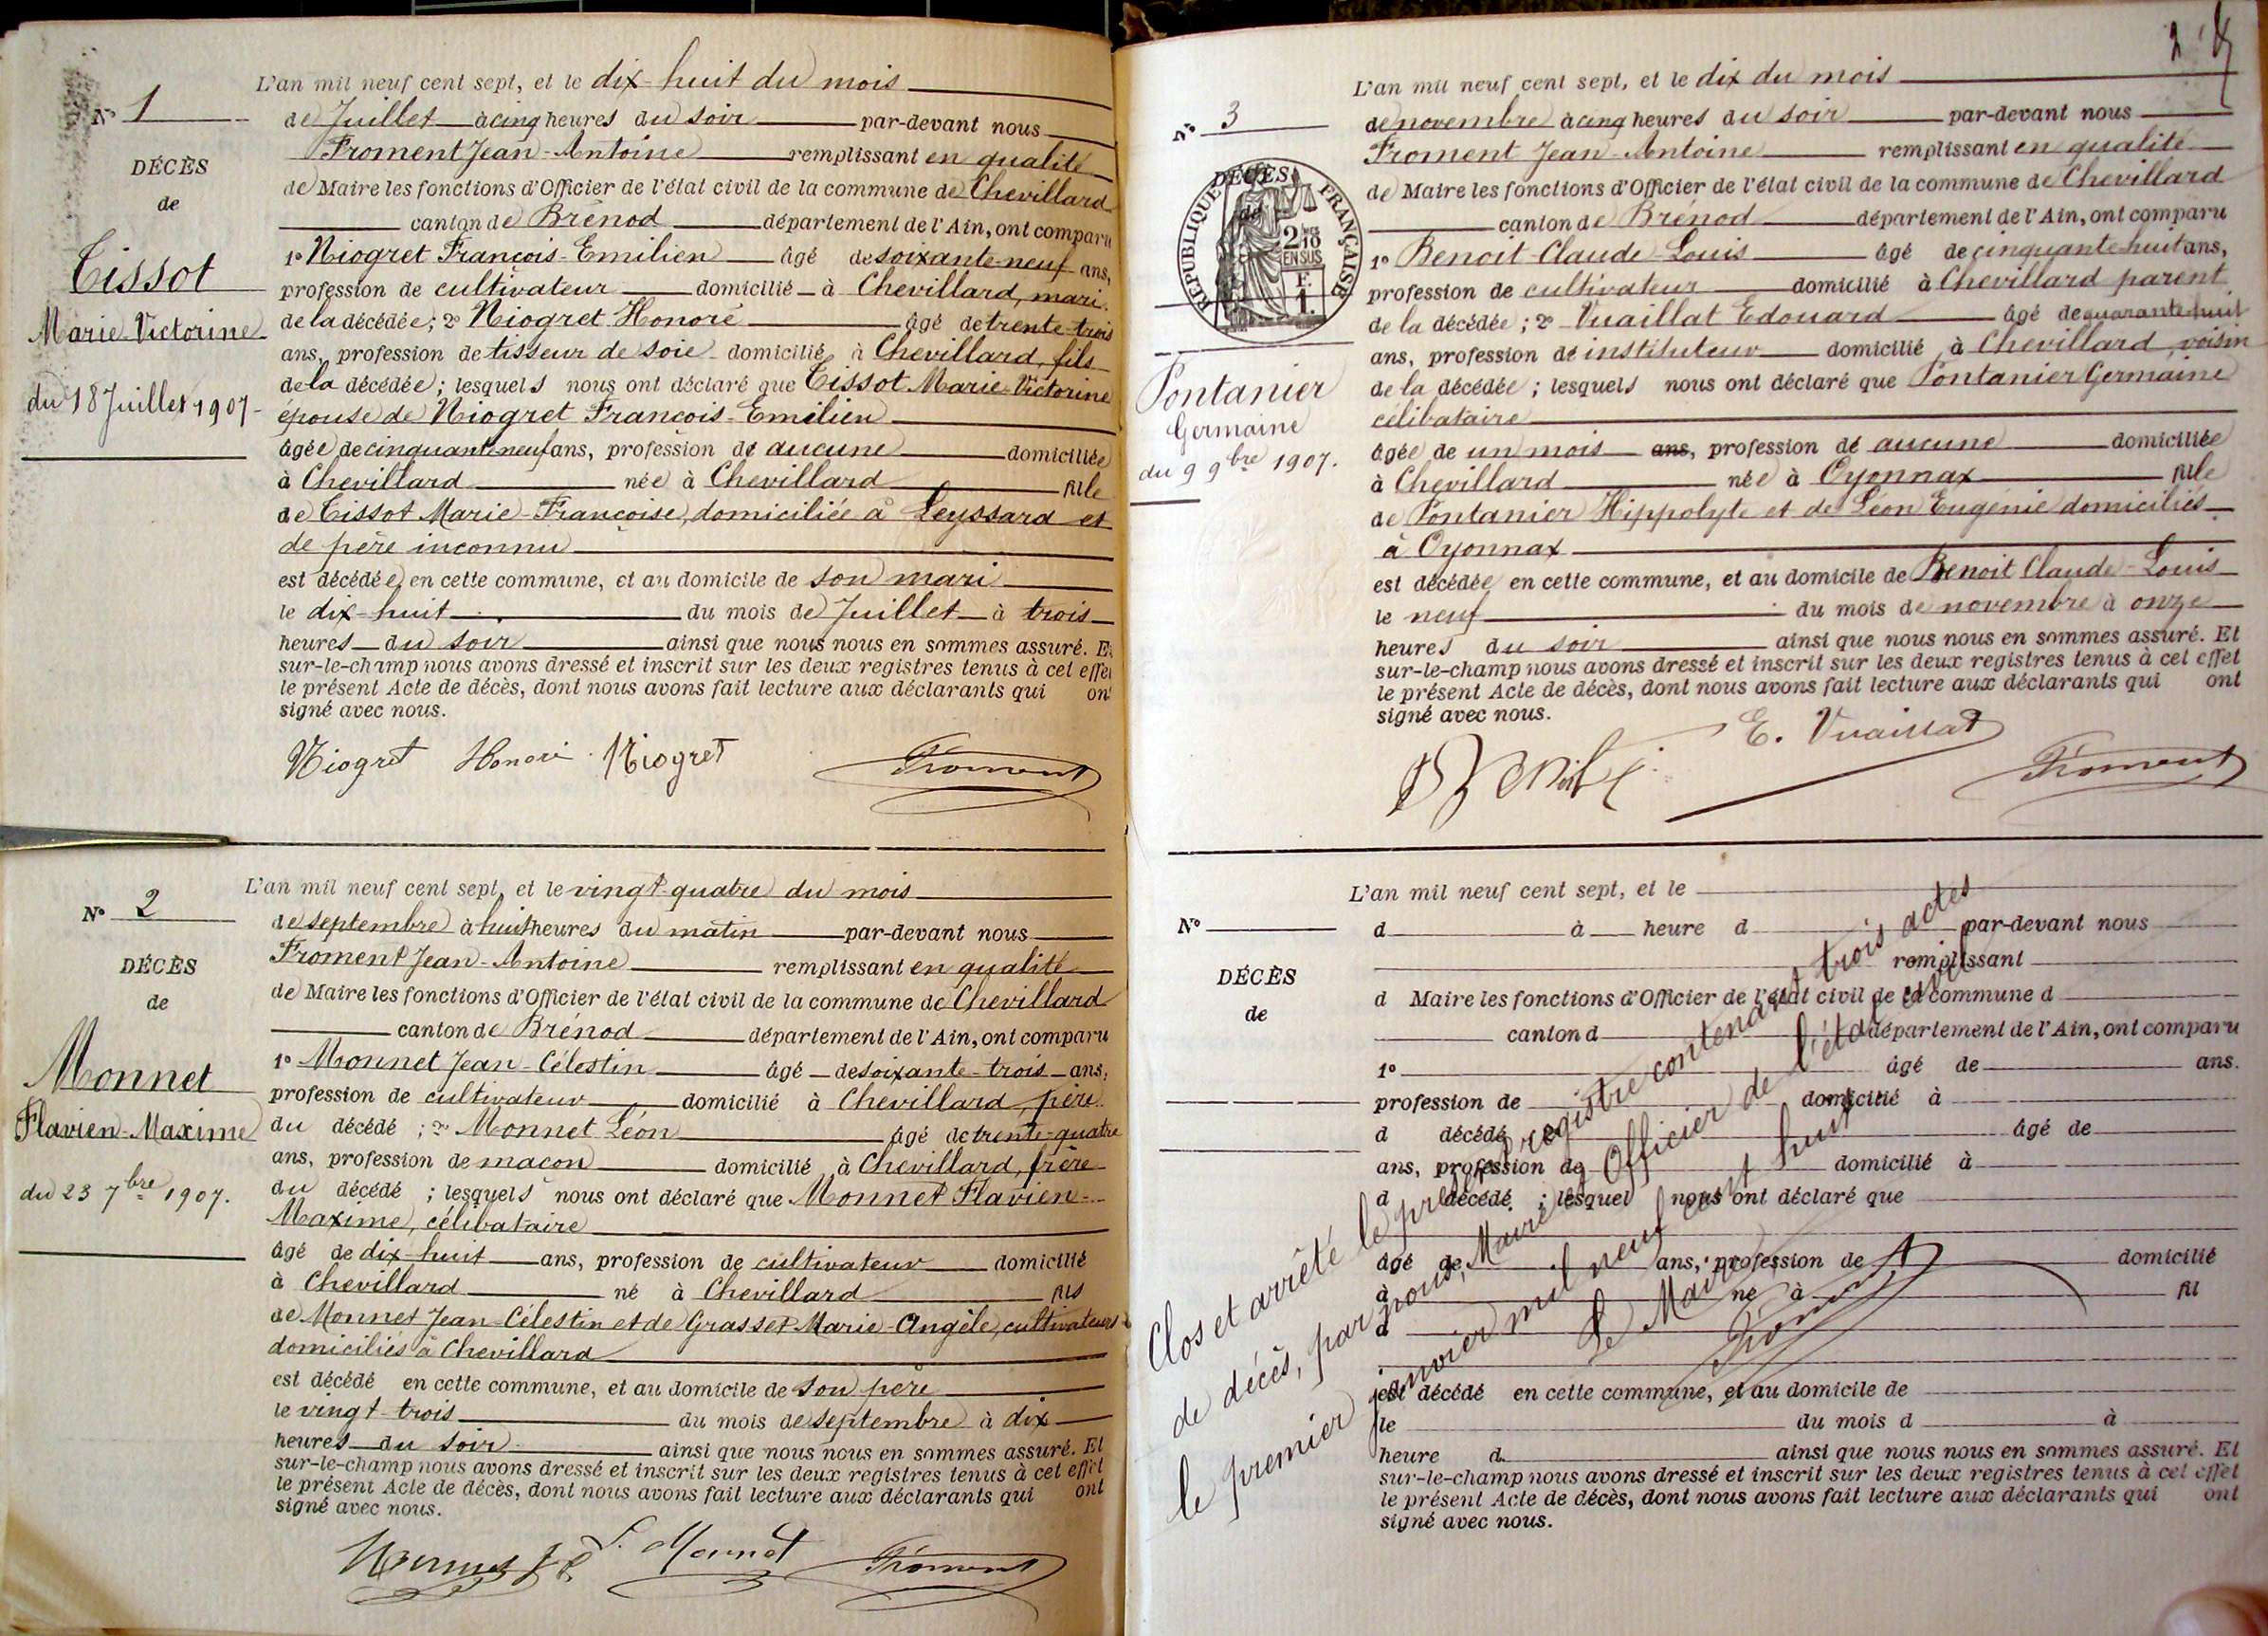 L'an mil neuf cent sept, et le dix-huit du mois
N° 1
de Juillet à cinq heures du soir par-devant nous
Froment Jean-Antoine remplissant en qualité
DÉCÈS
de Maire les fonctions d'Officier de l'état civil de la commune de Chevillard
de
canton de Brénod département de l'Ain, ont comparu
1° Niogret François-Emilien âgé de soixante-neuf ans,
Tissot
profession de cultivateur domicilié à Chevillard, mari
Marie-Victorine
de la décédée ; 2° Niogret Honoré âgé de trente-trois
ans, profession de tisseur de soie domicilié à Chevillard, fils
de la décédée ; lesquels nous ont déclaré que Tissot Marie-Victorine
du 18 Juillet 1907
épouse de Niogret François-Emilien
âgée de cinquante neuf ans, profession de aucune domiciliée
à Chevillard née à Chevillard fille
de Tissot Marie-Françoise, domiciliée à Leyssard et
de père inconnu
est décédée en cette commune, et au domicile de son mari
le dix-huit du mois de Juillet à trois
heures du soir ainsi que nous nous en sommes assuré. Et
sur-le-champ nous avons dressé et inscrit sur les deux registres tenus à cet effet
le présent Acte de décès, dont nous avons fait lecture aux déclarants qui ont
signé avec nous.
Niogret Honoré Niogret Froment
L'an mil neuf cent sept, et le vingt-quatre du mois
N° 2
de septembre à huit heures du matin par-devant nous
Froment Jean-Antoine remplissant en qualité
DÉCÈS
de Maire les fonctions d'Officier de l'état civil de la commune de Chevillard
de
canton de Brénod département de l'Ain, ont comparu
1° Monnet Jean-Célestin âgé de soixante-trois ans,
Monnet
profession de cultivateur domicilié à Chevillard, père
Flavien-Maxime
du décédé ; 2° Monnet Léon âgé de trente-quatre
ans, profession de maçon domicilié à Chevillard, frère
du 23 7bre 1907.
du décédé ; lesquels nous ont déclaré que Monnet Flavien-
Maxime, célibataire
âgé de dix-huit ans, profession de cultivateur domicilié
à Chevillard né à Chevillard fils
de Monnet Jean-Célestin et de Grasset Marie-Angèle, cultivateurs
domiciliés à Chevillard
est décédé en cette commune, et au domicile de son père
le vingt-trois du mois de septembre à dix
heures du soir ainsi que nous nous en sommes assuré. Et
sur-le-champ nous avons dressé et inscrit sur les deux registres tenus à cet effet
le présent Acte de décès, dont nous avons fait lecture aux déclarants qui ont
signé avec nous.
L. Monnet Froment
2
L'an mil neuf cent sept, et le dix du mois
N° 3
de novembre à cinq heures du soir par-devant nous
Froment Jean-Antoine remplissant en qualité
DÉCÈS
de
RÉPUBLIQUE FRANÇAISE
2/10 EN SUS
F. 1.
de Maire les fonctions d'Officier de l'état civil de la commune de Chevillard
canton de Brénod département de l'Ain, ont comparu
1° Benoit Claude-Louis âgé de cinquante huit ans,
profession de cultivateur domicilié à Chevillard parent
de la décédée ; 2° Vuaillat Edouard âgé de quarante huit
ans, profession de instituteur domicilié à Chevillard, voisin
Pontanier
Germaine
du 9 9bre 1907.
de la décédée ; lesquels nous ont déclaré que Pontanier Germaine
célibataire
âgée de un mois ans, profession de aucune domiciliée
à Chevillard née à Oyonnax fille
de Pontanier Hippolyte et de Léon Eugénie domiciliés
à Oyonnax
est décédée en cette commune, et au domicile de Benoit Claude-Louis
le neuf du mois de novembre à onze
heures du soir ainsi que nous nous en sommes assuré. Et
sur-le-champ nous avons dressé et inscrit sur les deux registres tenus à cet effet
le présent Acte de décès, dont nous avons fait lecture aux déclarants qui ont
signé avec nous.
E. Vuaillat
Froment
L'an mil neuf cent sept, et le
N°
d à heure d par-devant nous
remplissant
DÉCÈS
d Maire les fonctions d'Officier de l'état civil de la commune d
de
canton d département de l'Ain, ont comparu
1° âgé de ans.
profession de domicilié à
d décédé âgé de
ans, profession de domicilié à
d décédé ; lesquel nous ont déclaré que
âgé de ans, profession de domicilié
à né à fil
d
est décédé en cette commune, et au domicile de
le du mois d à
heure d ainsi que nous nous en sommes assuré. Et
sur-le-champ nous avons dressé et inscrit sur les deux registres tenus à cet effet
le présent Acte de décès, dont nous avons fait lecture aux déclarants qui ont
signé avec nous.
Clos et arrêté le présent registre contenant trois actes
de décès, par nous, Maire et Officier de l'état civil
le premier janvier mil neuf cent huit
Le Maire
Froment